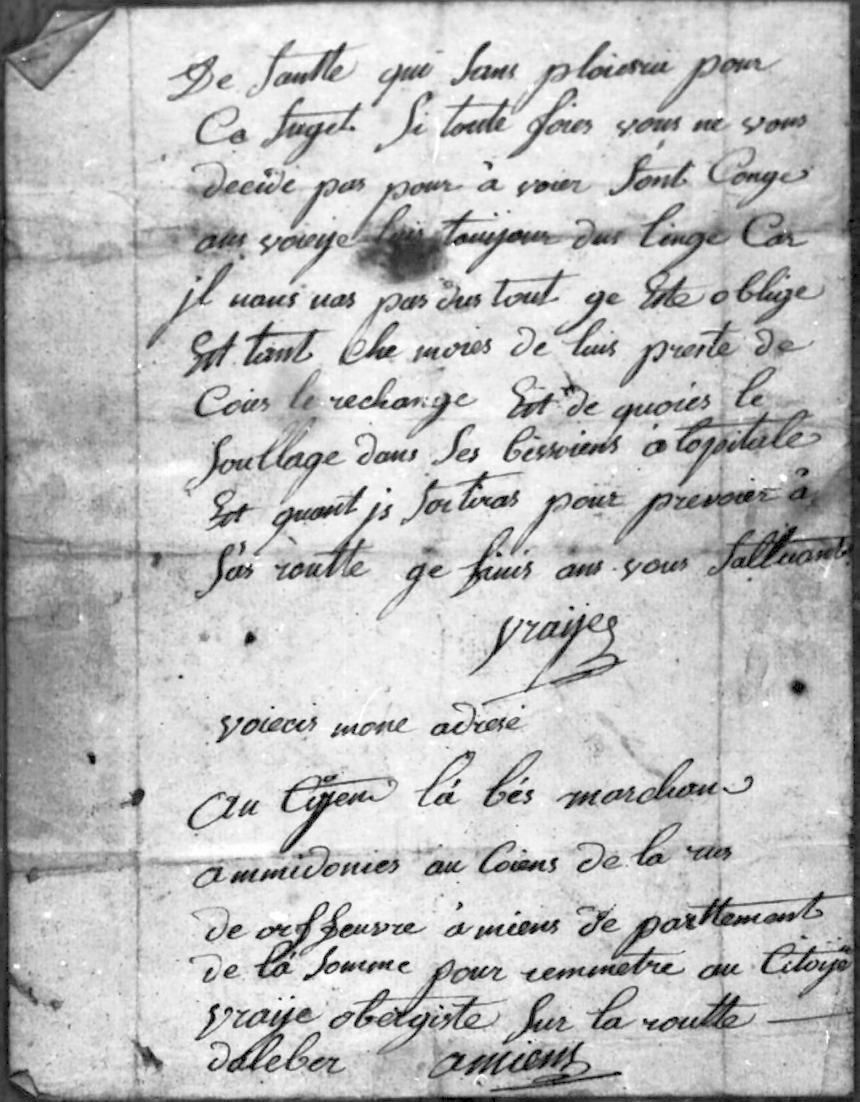 De Sautte qui sans ploierai pour
Ce suget Si toute foies vous ne vous
decide pas pour à voier sont Conge
ans voieije luis toujour dus linge Car
jl nans nas pas dus tout ge Este oblige
Est tant Che moies de luis preste de
Coies le rechange Est de quoies le
soullage dans ses bessoiens à lopitale
Est quant js sortiras pour prevoier à
sas routte ge finis ans vous Salluant
vraije
voiecis mone adrese
Au Citijen là bés marchan
ammidonies au Coiens de la rus
de orffeuvre àmiens de parttemant
de là Somme pour remmetre au Citoije
vraije obergiste sur la routte
daleber amiens